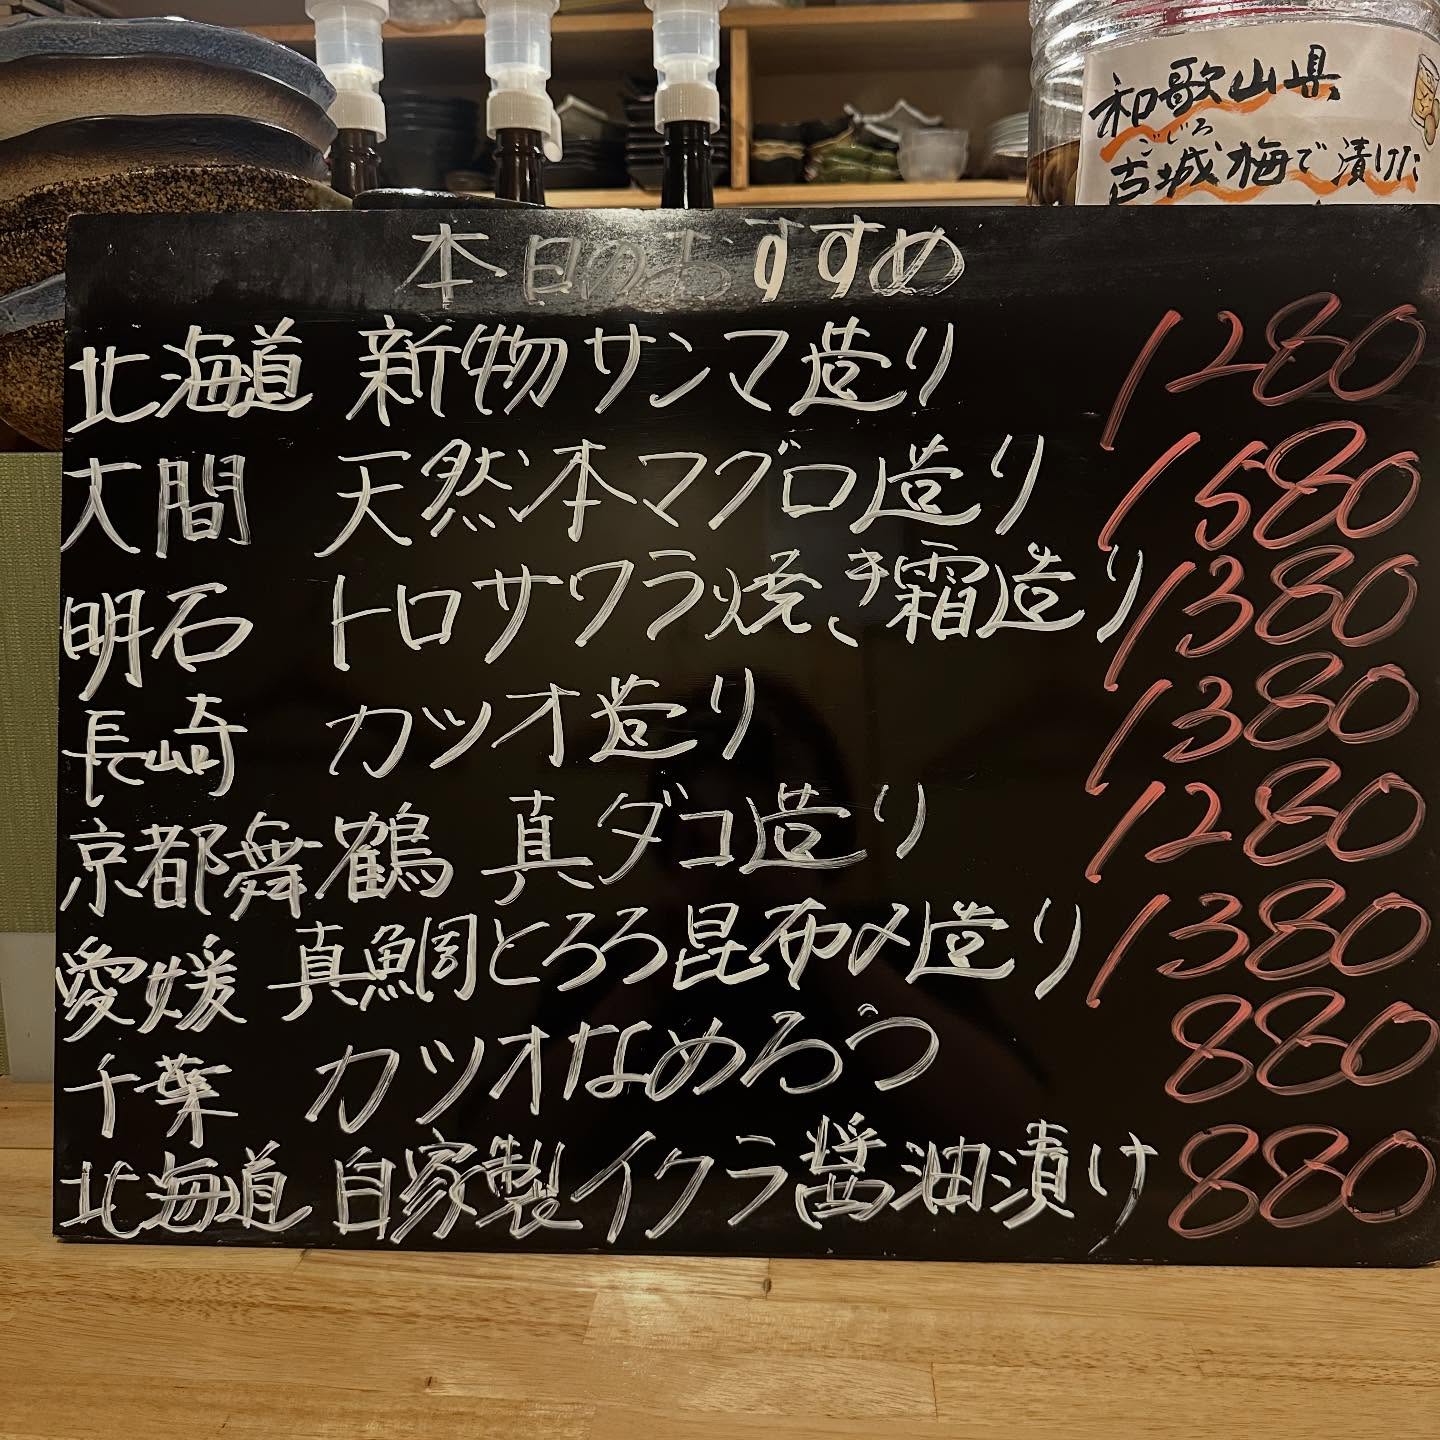 和歌山県
ごじろ
古城梅で漬けた
本日のおすすめ
北海道 新物サンマ造り 1280
大間 天然本マグロ造り 1580
明石 トロサワラ焼き霜造り 1380
長崎 カツオ造り 1380
京都舞鶴 真ダコ造り 1280
愛媛 真鯛とろろ昆布〆造り 1380
千葉 カツオなめろう 880
北海道 自家製イクラ醤油漬け 880